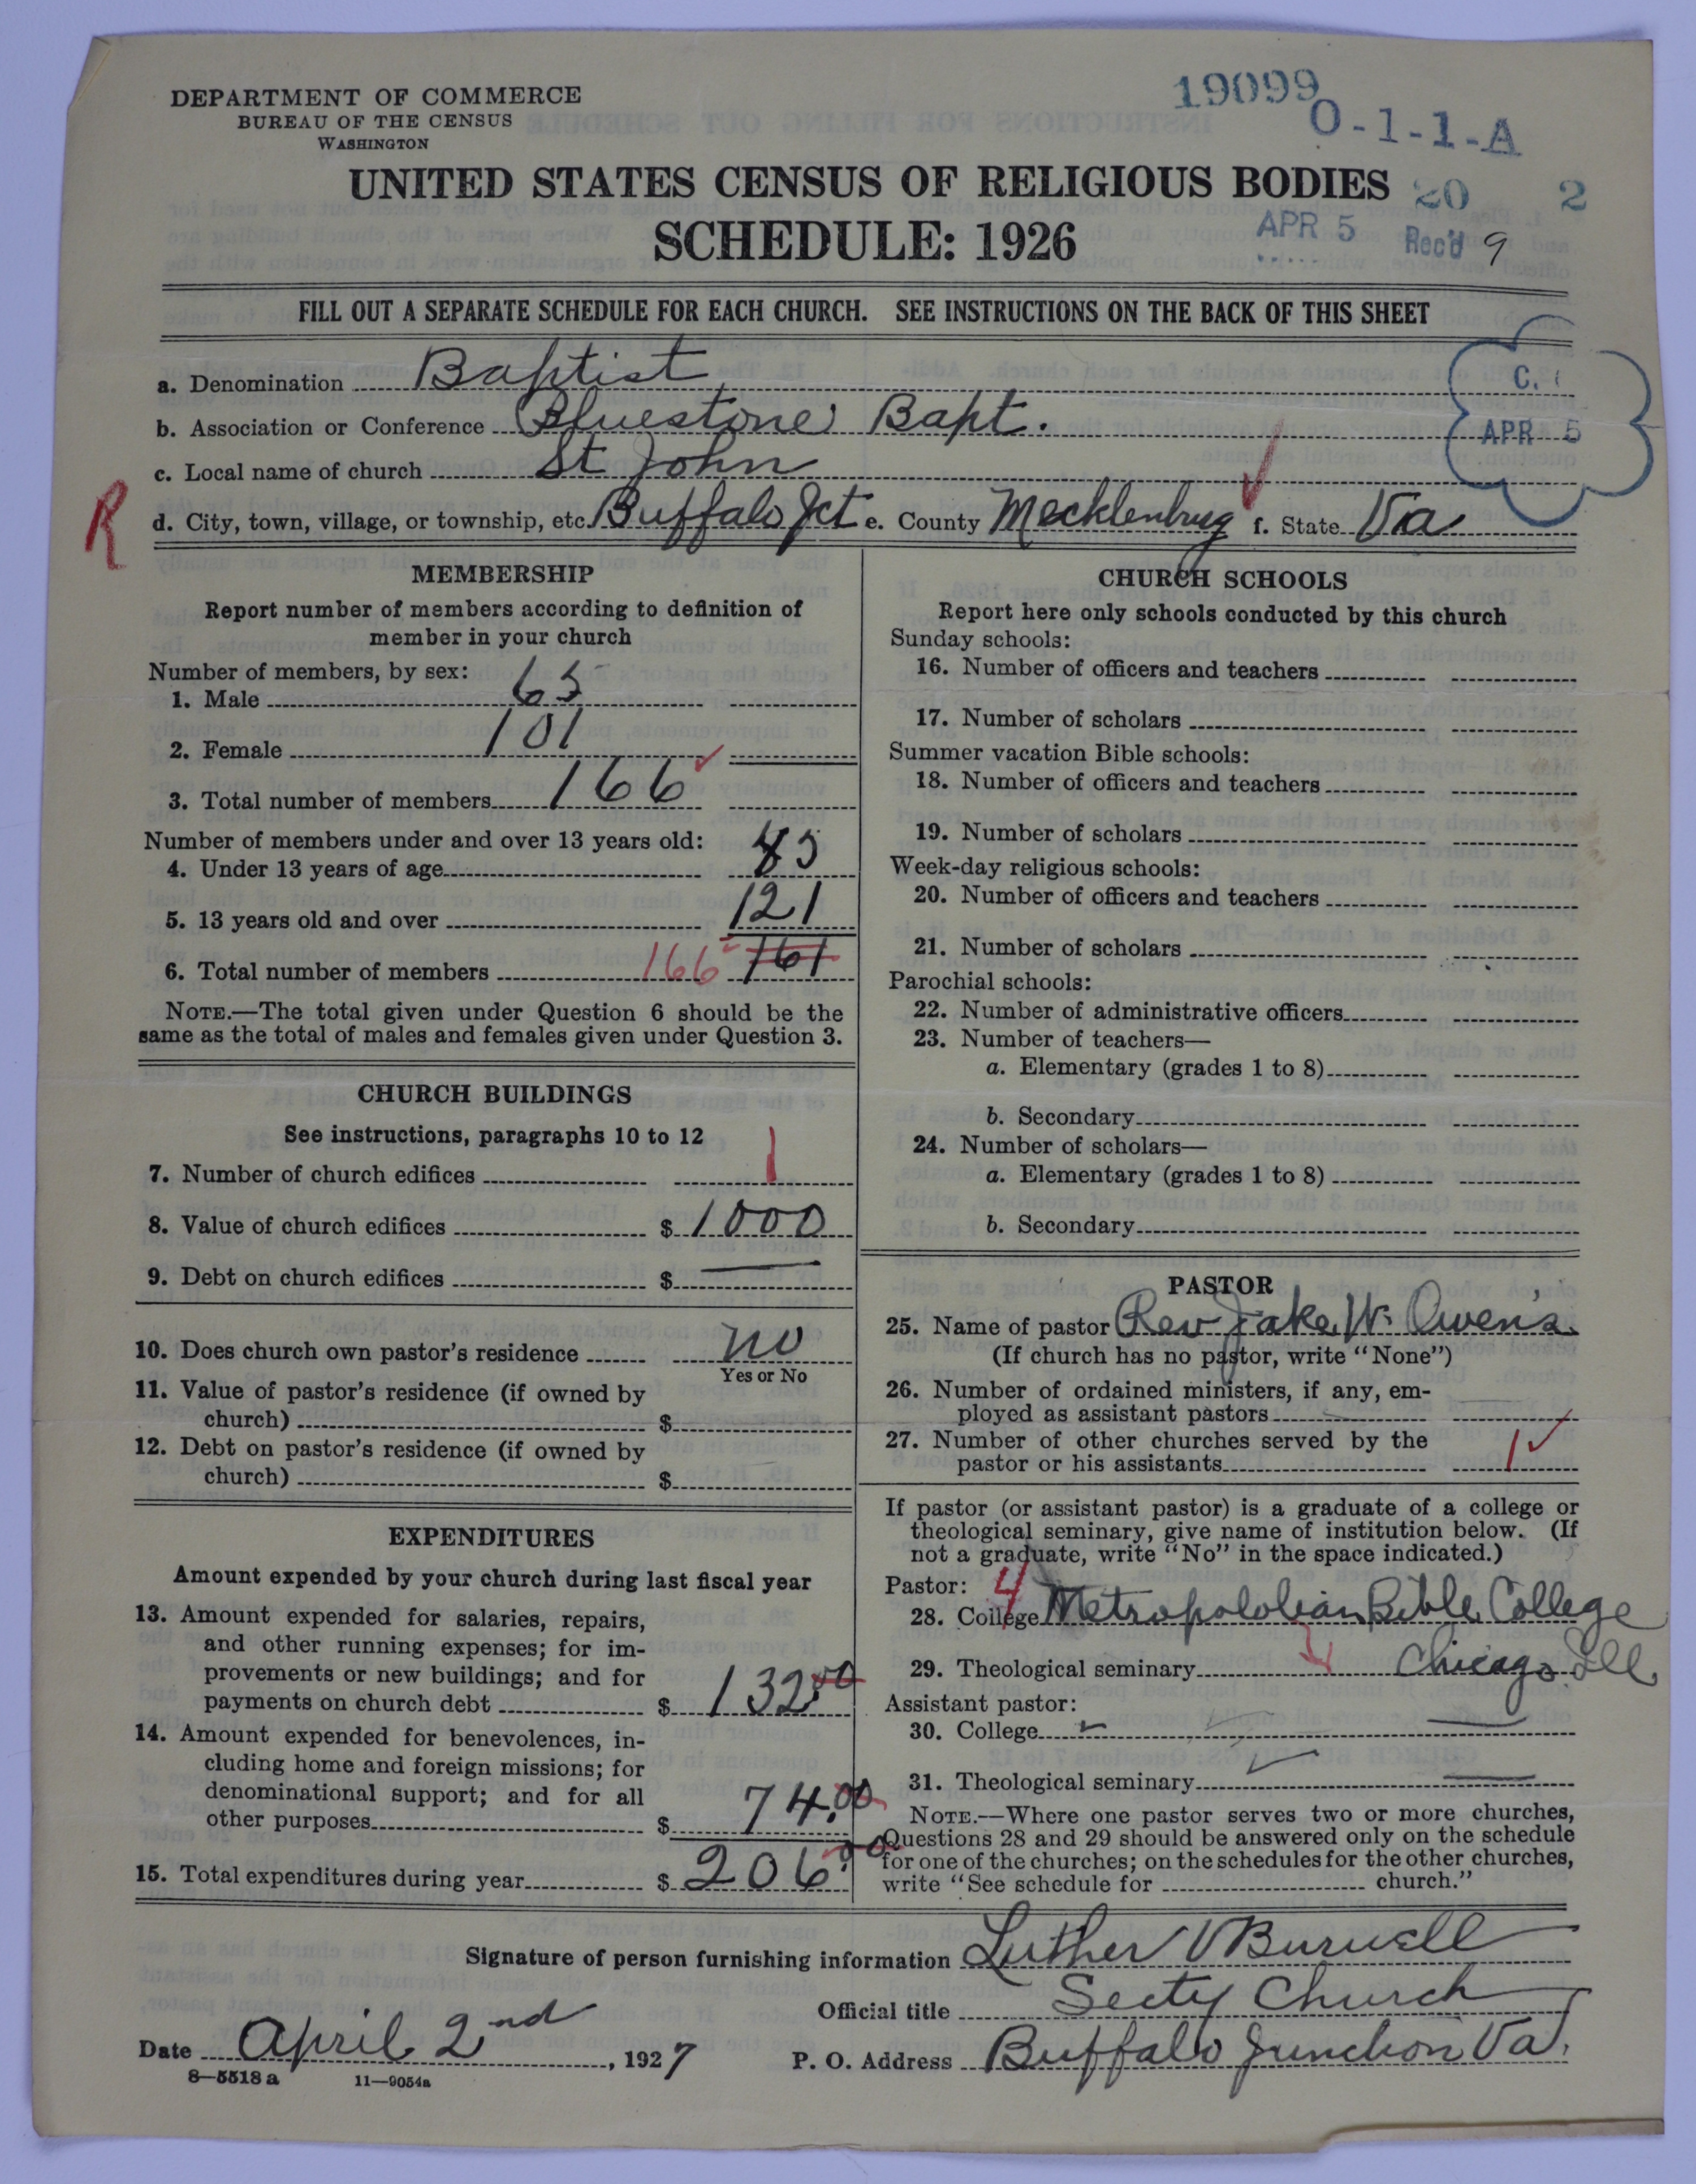 DEPARTMENT OF COMMERCE
BUREAU OF THE CENSUS
WASHINGTON
19099
O-1-1-A
UNITED STATES CENSUS OF RELIGIOUS BODIES
20 2
SCHEDULE: 1926
APR 5 Rec'd 9
FILL OUT A SEPARATE SCHEDULE FOR EACH CHURCH. SEE INSTRUCTIONS ON THE BACK OF THIS SHEET
C.
APR 5
a. Denomination Baptist
b. Association or Conference Bluestone Bapt.
c. Local name of church St John
R
d. City, town, village, or township, etc. Buffalo Jct e. County Mecklenbrug f. State Va
MEMBERSHIP
Report number of members according to definition of
member in your church
Number of members, by sex:
1. Male 65
2. Female 101
3. Total number of members 166
Number of members under and over 13 years old:
4. Under 13 years of age 45
5. 13 years old and over 121
6. Total number of members 166 161
NOTE.—The total given under Question 6 should be the
same as the total of males and females given under Question 3.
CHURCH BUILDINGS
See instructions, paragraphs 10 to 12
7. Number of church edifices 1
8. Value of church edifices $ 1000
9. Debt on church edifices $ —
10. Does church own pastor's residence no
Yes or No
11. Value of pastor's residence (if owned by
church) $
12. Debt on pastor's residence (if owned by
church) $
EXPENDITURES
Amount expended by your church during last fiscal year
13. Amount expended for salaries, repairs,
and other running expenses; for im-
provements or new buildings; and for
payments on church debt $ 132.00
14. Amount expended for benevolences, in-
cluding home and foreign missions; for
denominational support; and for all
other purposes $ 74.00
15. Total expenditures during year $ 206.00
CHURCH SCHOOLS
Report here only schools conducted by this church
Sunday schools:
16. Number of officers and teachers
17. Number of scholars
Summer vacation Bible schools:
18. Number of officers and teachers
19. Number of scholars
Week-day religious schools:
20. Number of officers and teachers
21. Number of scholars
Parochial schools:
22. Number of administrative officers
23. Number of teachers—
a. Elementary (grades 1 to 8)
b. Secondary
24. Number of scholars—
a. Elementary (grades 1 to 8)
b. Secondary
PASTOR
25. Name of pastor Rev Jake W. Owen's
(If church has no pastor, write "None")
26. Number of ordained ministers, if any, em-
ployed as assistant pastors
27. Number of other churches served by the
pastor or his assistants 1
If pastor (or assistant pastor) is a graduate of a college or
theological seminary, give name of institution below. (If
not a graduate, write "No" in the space indicated.)
Pastor: 4
28. College Metropololian Bible College
29. Theological seminary 4 Chicago Ill
Assistant pastor:
30. College —
31. Theological seminary —
NOTE.—Where one pastor serves two or more churches,
Questions 28 and 29 should be answered only on the schedule
for one of the churches; on the schedules for the other churches,
write "See schedule for church."
Signature of person furnishing information Luther V Burwell
Official title Secty Church
Date April 2nd, 1927 P. O. Address Buffalo Junction Va.
8—5518 a 11—9054a